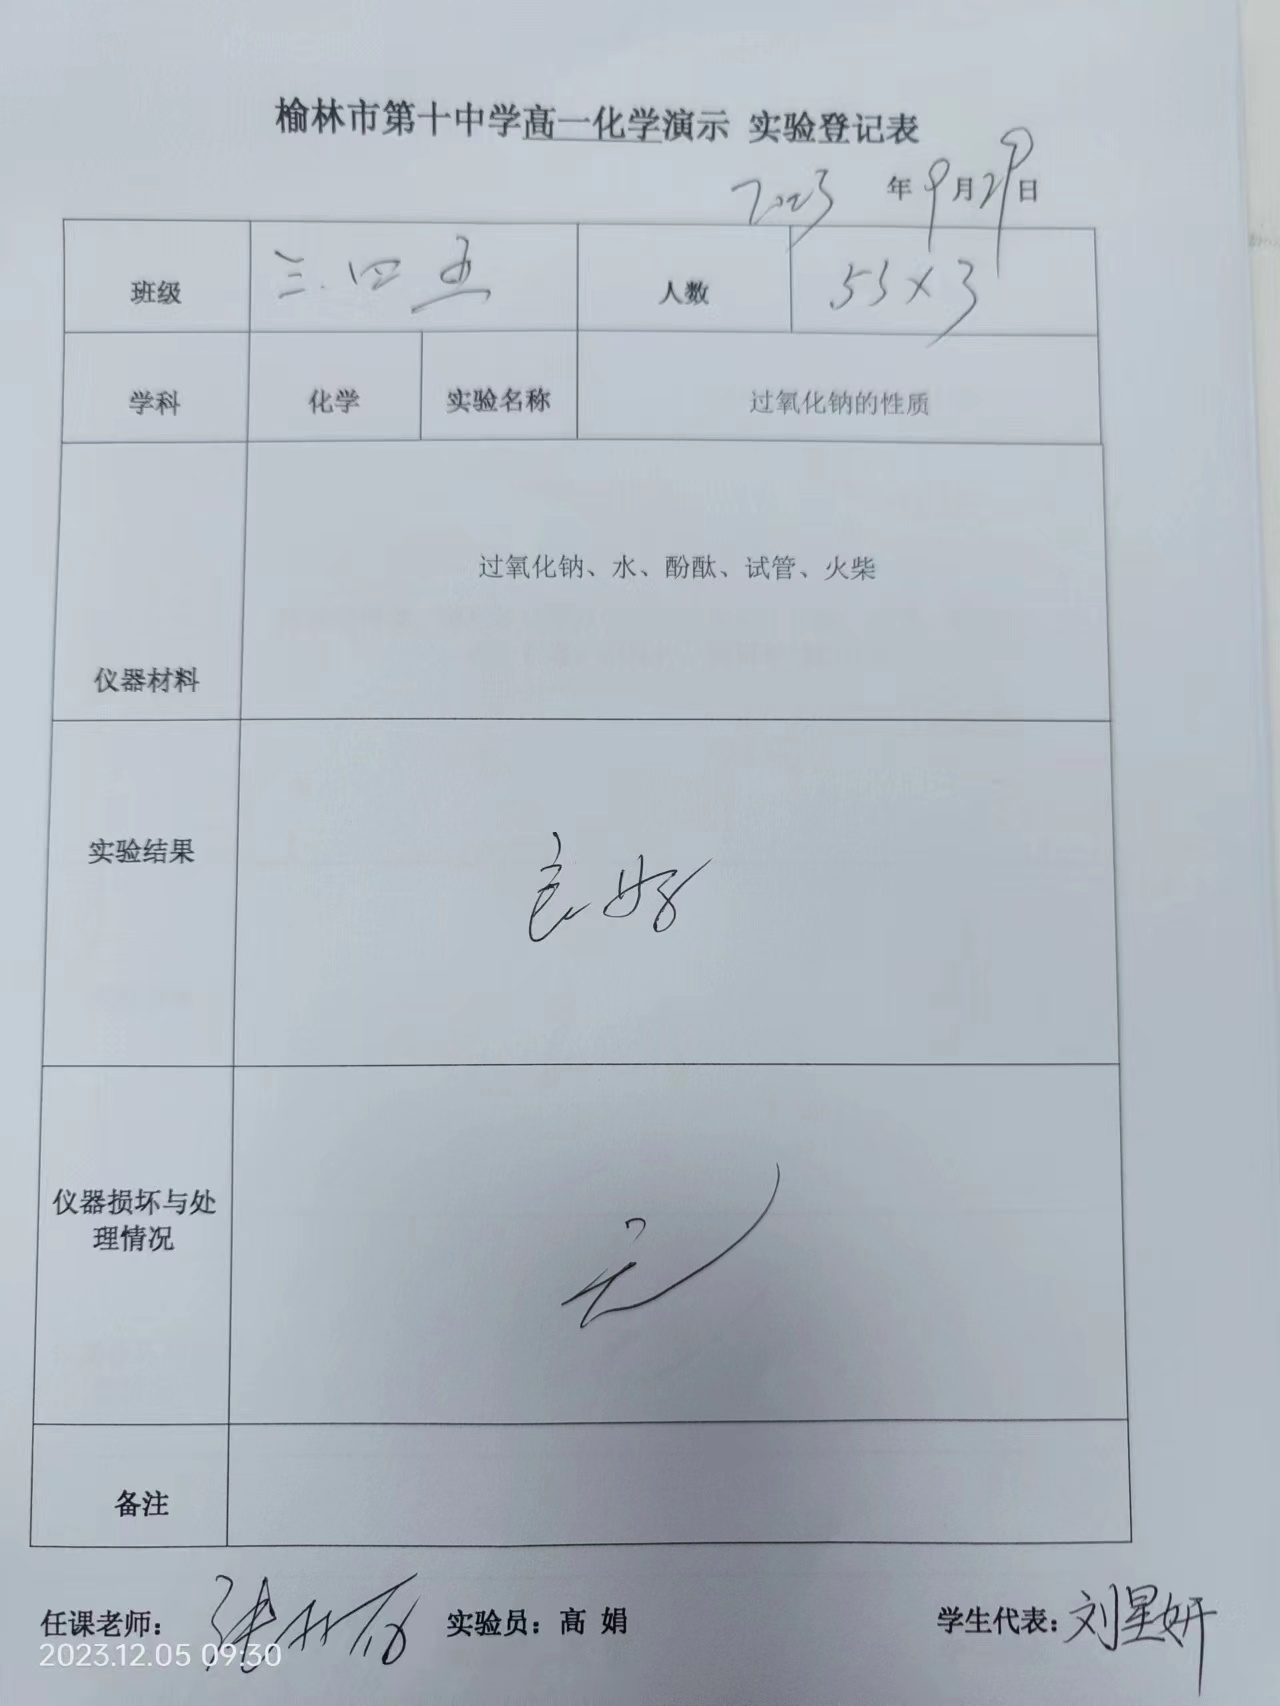 榆林市第十中学高一化学演示 实验登记表
2023 年 9 月 29 日
班级 三.四 五 人数 55×3
学科 化学 实验名称 过氧化钠的性质
过氧化钠、水、酚酞、试管、火柴
仪器材料
实验结果 良好
仪器损坏与处
理情况
无
备注
任课老师: 实验员: 高 娟 学生代表: 刘星妍
2023.12.05 09:30